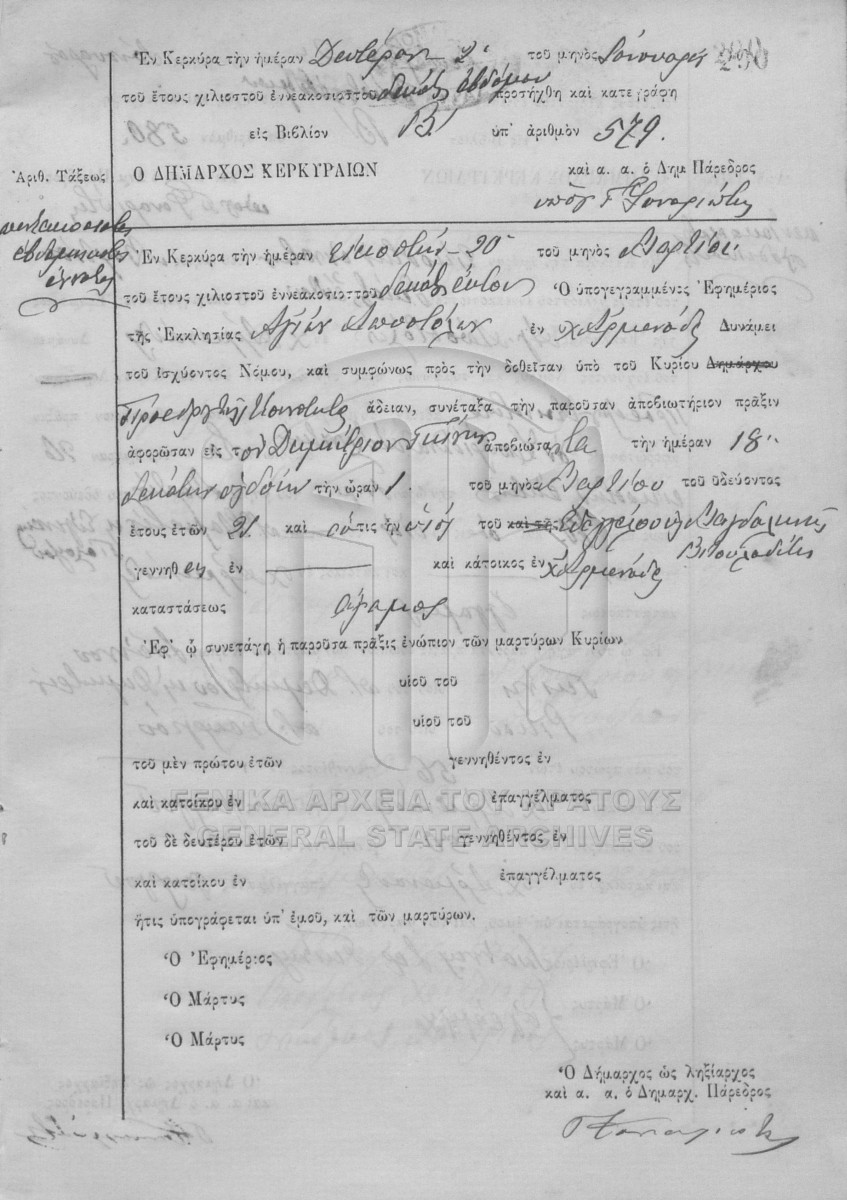 Ἐν Κερκύρᾳ τὴν ἡμέραν Δευτέραν 2α τοῦ μηνὸς Ἰανουαρίου
τοῦ ἔτους χιλιοστοῦ ἐννεακοσιοστοῦ δεκάτου ἑβδόμου προσήχθη καὶ κατεγράφη
εἰς Βιβλίον Β' ὑπ' ἀριθμὸν 579.
Ἀριθ. Τάξεως
Ο ΔΗΜΑΡΧΟΣ ΚΕΡΚΥΡΑΙΩΝ
καὶ α. α. ὁ Δημ Πάρεδρος
πεντακοσιοστὸς
ἑβδομηκοστὸς
ἔννατος
Ἐν Κερκύρᾳ τὴν ἡμέραν εἰκοστὴν 20 τοῦ μηνὸς Μαρτίου
τοῦ ἔτους χιλιοστοῦ ἐννεακοσιοστοῦ δεκάτου ἕκτου Ὁ ὑπογεγραμμένος Ἐφημέριος
τῆς Ἐκκλησίας Ἁγίων Ἀποστόλων ἐν Χ. Ἀρμενάδες Δυνάμει
τοῦ ἰσχύοντος Νόμου, καὶ συμφώνως πρὸς τὴν δοθεῖσαν ὑπὸ τοῦ Κυρίου Δημάρχου
Προέδρου τῆς Κοινότητος ἄδειαν, συνέταξα τὴν παροῦσαν ἀποβιωτήριον πρᾶξιν
ἀφορῶσαν εἰς τὸν Δημήτριον ἀποβιώσαντα τὴν ἡμέραν 18
δεκάτην ὀγδόην τὴν ὥραν 1. τοῦ μηνὸς Μαρτίου τοῦ ὁδεύοντος
ἔτους ἐτῶν 21 καὶ ὅστις ἦν υἱὸς τοῦ καὶ τῆς
γεννηθεὶς ἐν καὶ κάτοικος ἐν Χ. Ἀρμενάδες
καταστάσεως ἄγαμος
Ἐφ' ᾧ συνετάγη ἡ παροῦσα πρᾶξις ἐνώπιον τῶν μαρτύρων Κυρίων
υἱοῦ τοῦ
υἱοῦ τοῦ
τοῦ μὲν πρώτου ἐτῶν γεννηθέντος ἐν
καὶ κατοίκου ἐν ἐπαγγέλματος
ΓΕΝΙΚΑ ΑΡΧΕΙΑ ΤΟΥ ΚΡΑΤΟΥΣ
GENERAL STATE ARCHIVES
τοῦ δὲ δευτέρου ἐτῶν γεννηθέντος ἐν
καὶ κατοίκου ἐν ἐπαγγέλματος
ἥτις ὑπογράφεται ὑπ' ἐμοῦ, καὶ τῶν μαρτύρων.
Ὁ Ἐφημέριος
Ὁ Μάρτυς
Ὁ Μάρτυς
Ὁ Δήμαρχος ὡς ληξίαρχος
καὶ α. α. ὁ Δημαρχ. Πάρεδρος